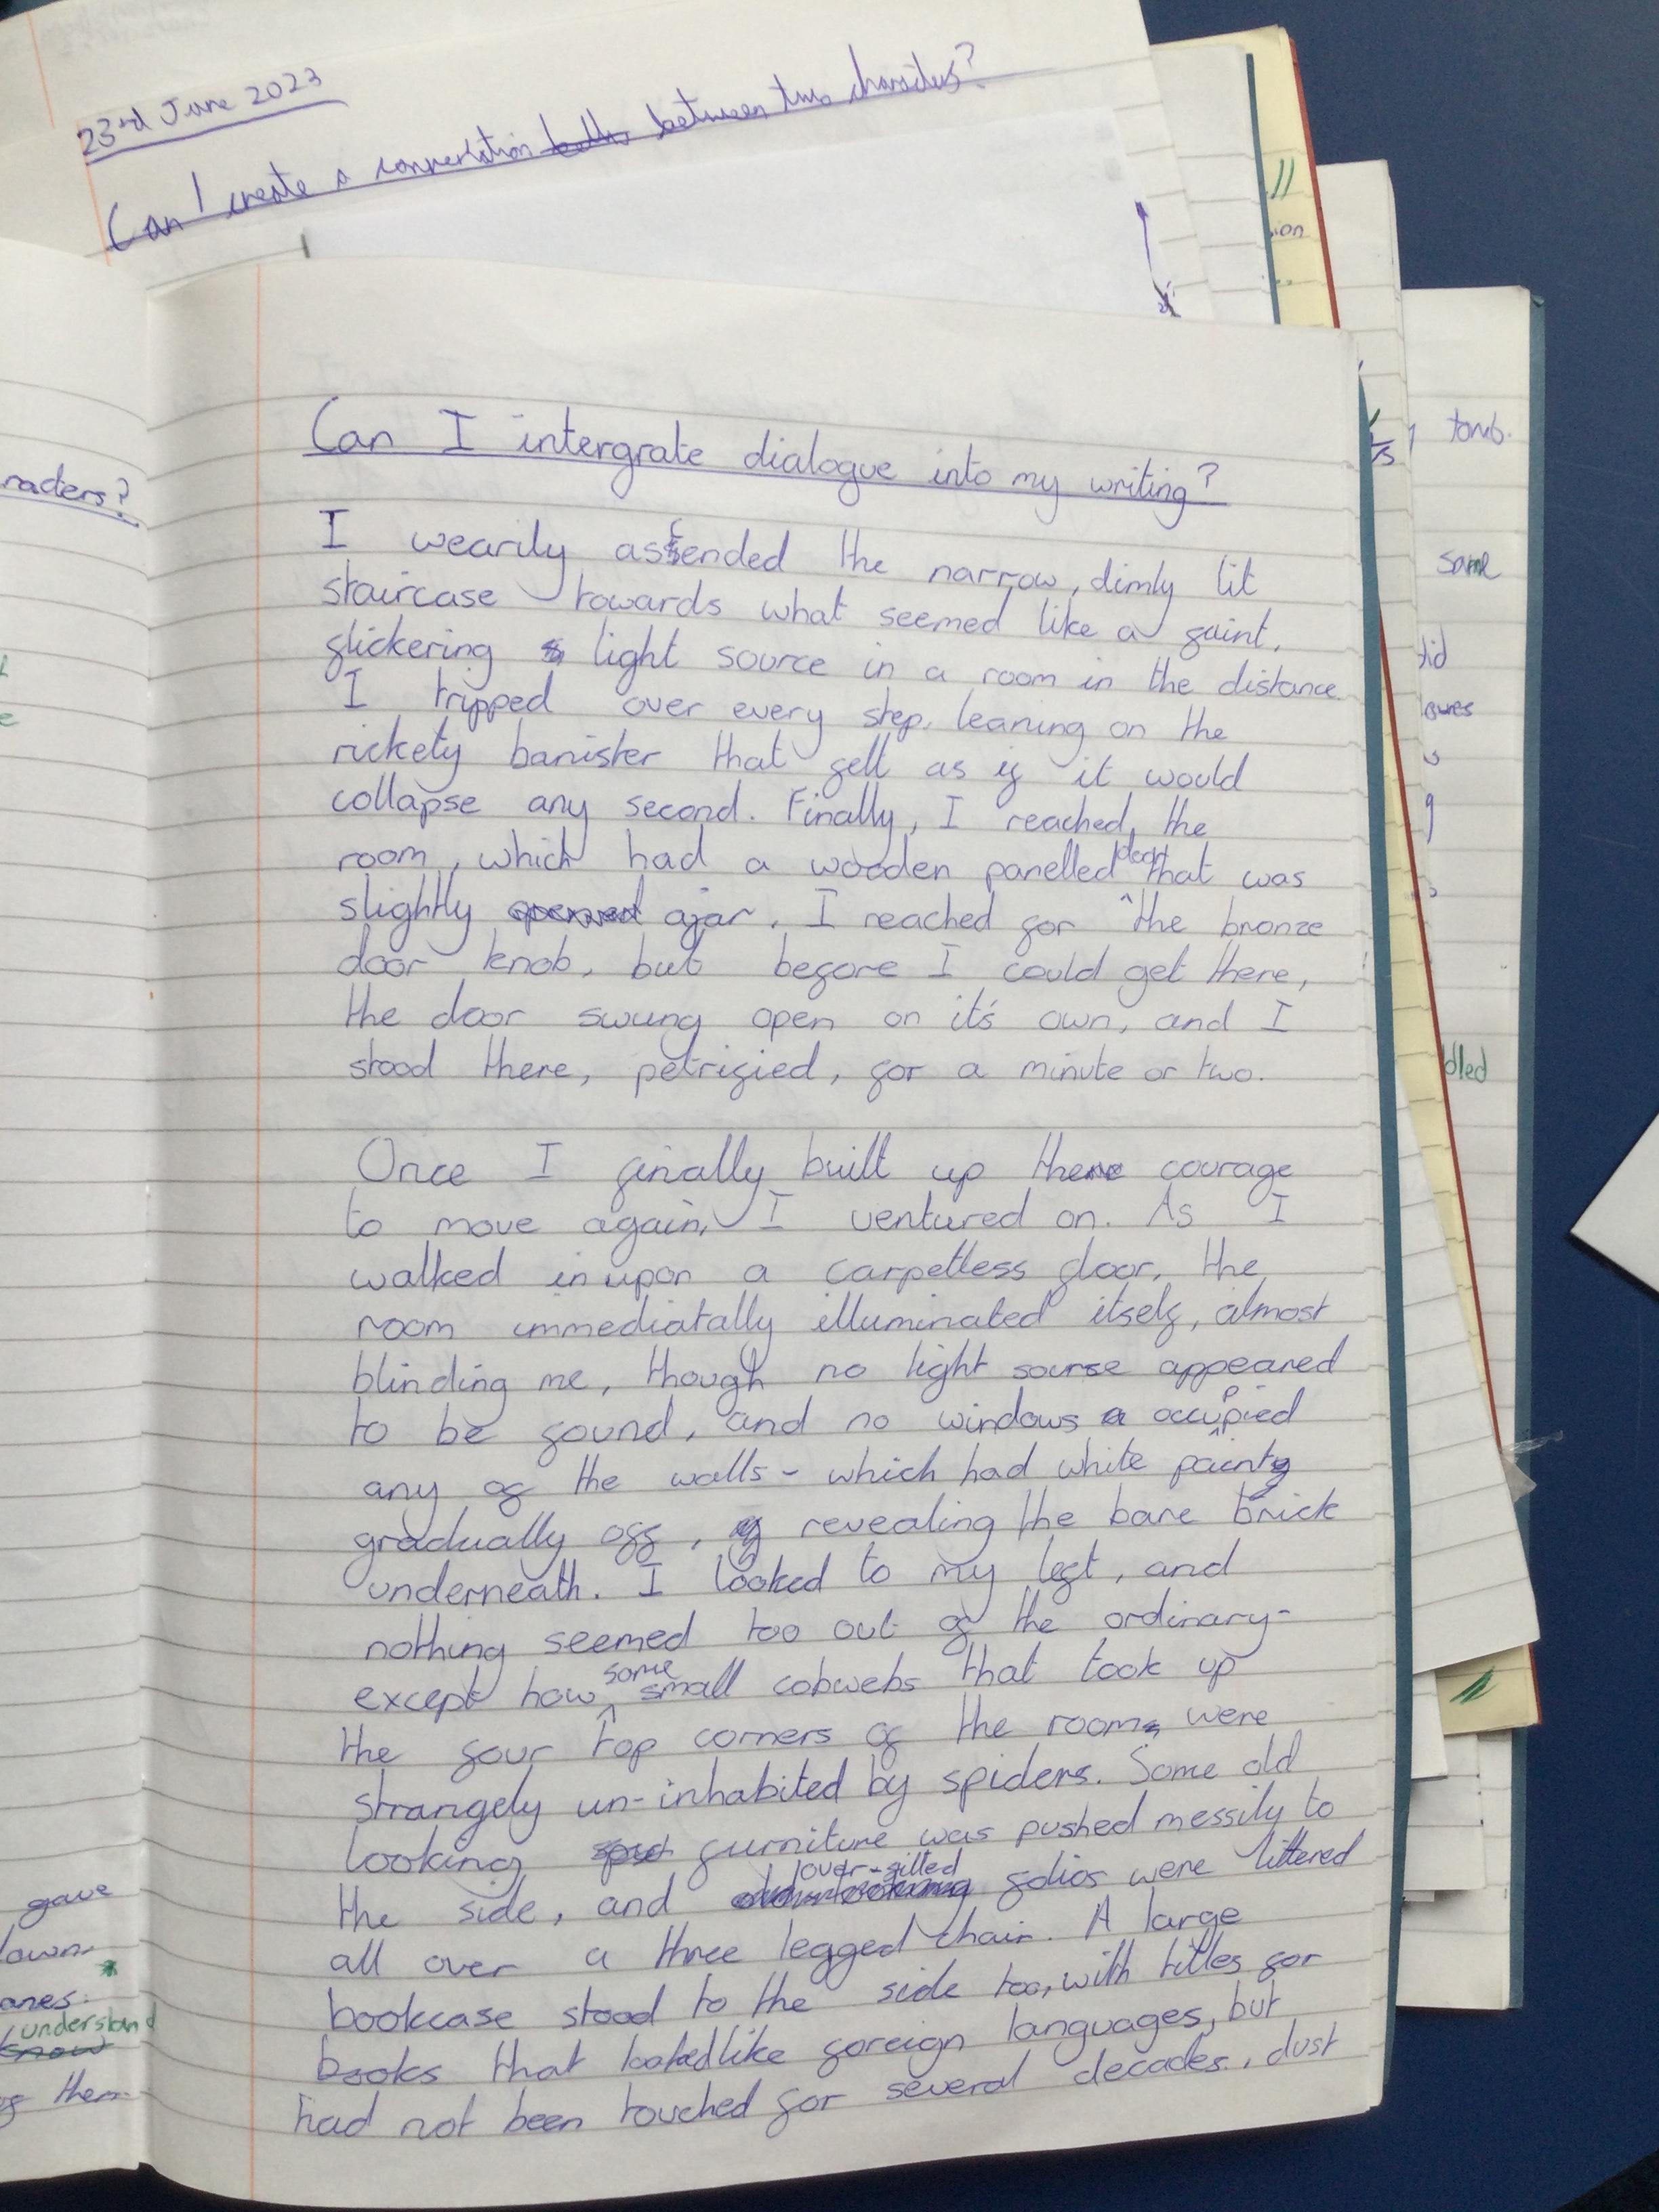 23rd June 2023
Can I create a conversation between two characters?
racters?
Can I intergrate dialogue into my writing?
I wearily ascended the narrow, dimly lit
staircase towards what seemed like a faint,
flickering light source in a room in the distance.
I tripped over every step, leaning on the
rickety banister that felt as if it would
collapse any second. Finally, I reached the
room, which had a wooden panelled door that was
slightly ajar. I reached for the bronze
door knob, but before I could get there,
the door swung open on it's own, and I
stood there, petrified, for a minute or two.
Once I finally built up the courage
to move again, I ventured on. As I
walked in upon a carpetless floor, the
room immediatally illuminated itself, almost
blinding me, though no light sourse appeared
to be found, and no windows occupied
any of the walls - which had white paint
gradually off, revealing the bare brick
underneath. I looked to my left, and
nothing seemed too out of the ordinary -
except how some small cobwebs that took up
the four top corners of the room, were
strangely un-inhabited by spiders. Some old
looking furniture was pushed messily to
the side, and over-filled folios were littered
all over a three legged chair. A large
bookcase stood to the side too, with titles for
books that looked like foreign languages, but
had not been touched for several decades, dust
gave
down
anes.
understand
know
of them
ion
tomb.
same
did
oures
bled